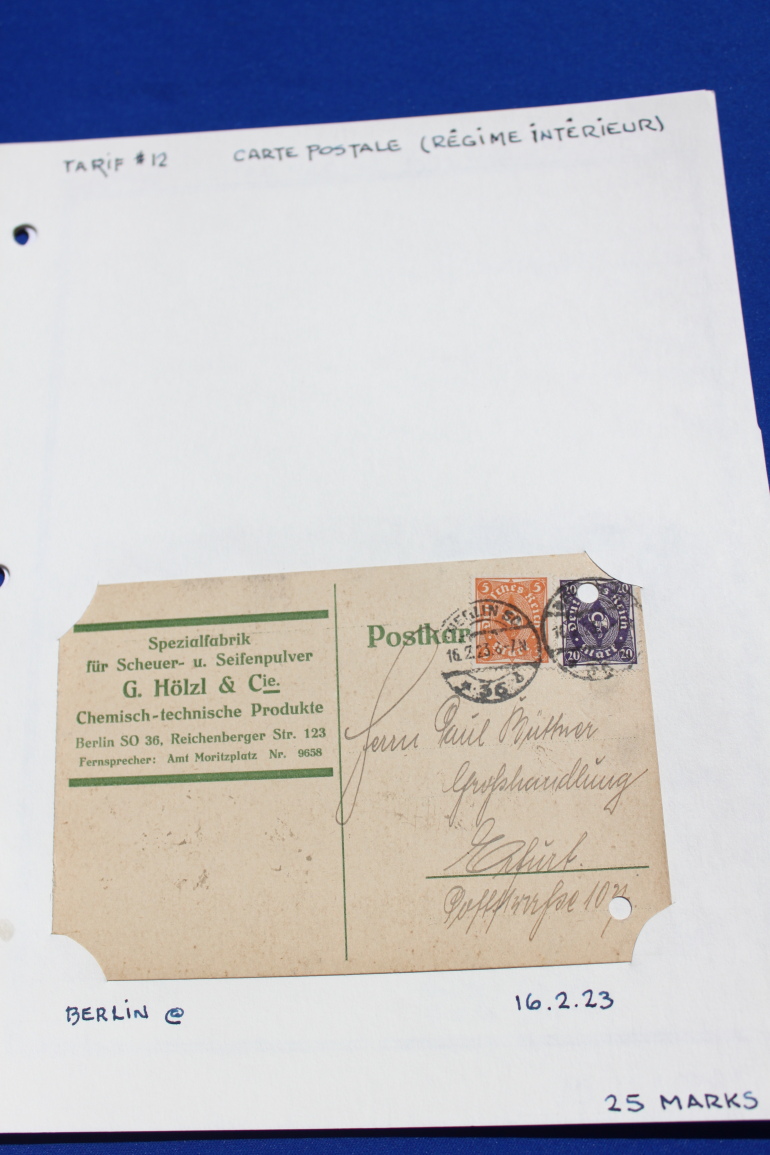 TARIF #12 CARTE POSTALE (RÉGIME INTÉRIEUR)
Spezialfabrik
für Scheuer- u. Seifenpulver
G. Hölzl & Cie.
Chemisch-technische Produkte
Berlin SO 36, Reichenberger Str. 123
Fernsprecher: Amt Moritzplatz Nr. 9658
5 5
20 20
BERLIN SO
16.2.23.6-7N.
* 36
Herrn Paul Büttner
Großhandlung
Erfurt.
BERLIN @ 16.2.23
25 MARKS